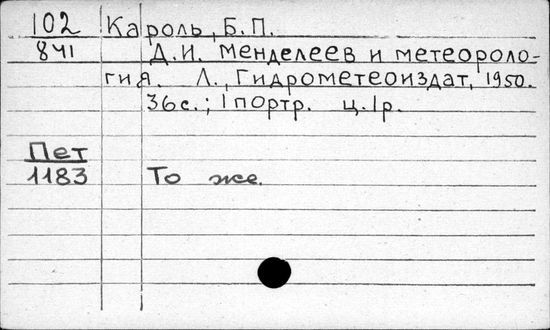 102 Кароль, Б.П.
841 Д.И. Менделеев и метеороло-
гия. Л., Гидрометеоиздат, 1950.
36с.; 1 портр. ц. 1р.
Пет
1183 То же.